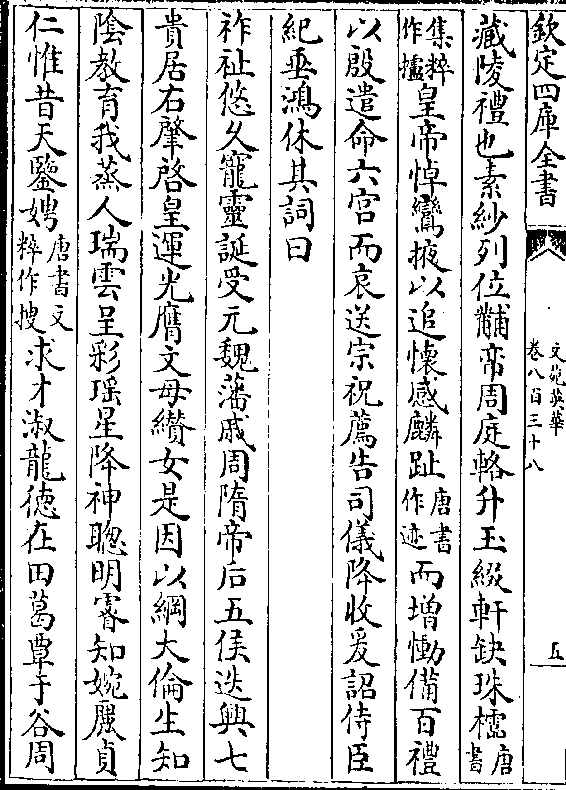 欽定四庫全書
文苑英華
卷八百三十八
五
藏陵禮也素紗列位黼帟周庭輅升玉綴軒缺珠櫺唐書
集粹作攎皇帝悼鸞掖以追懷感麟趾唐書作迹而增慟備百禮
以殷遣命六宫而哀送宗祝薦告司儀降收爰詔侍臣
紀垂鴻休其詞曰
祚祉悠久寵靈誕受元魏藩戚周隋帝后五侯迭興七
貴居右肇啓皇運光膺文母纘女是因以綱大倫生知
陰教育我蒸人瑞雲呈彩瑶星降神聰明睿知婉麗貞
仁惟昔天鑒娉唐書文粹作搜求才淑龍德在田葛覃于谷周